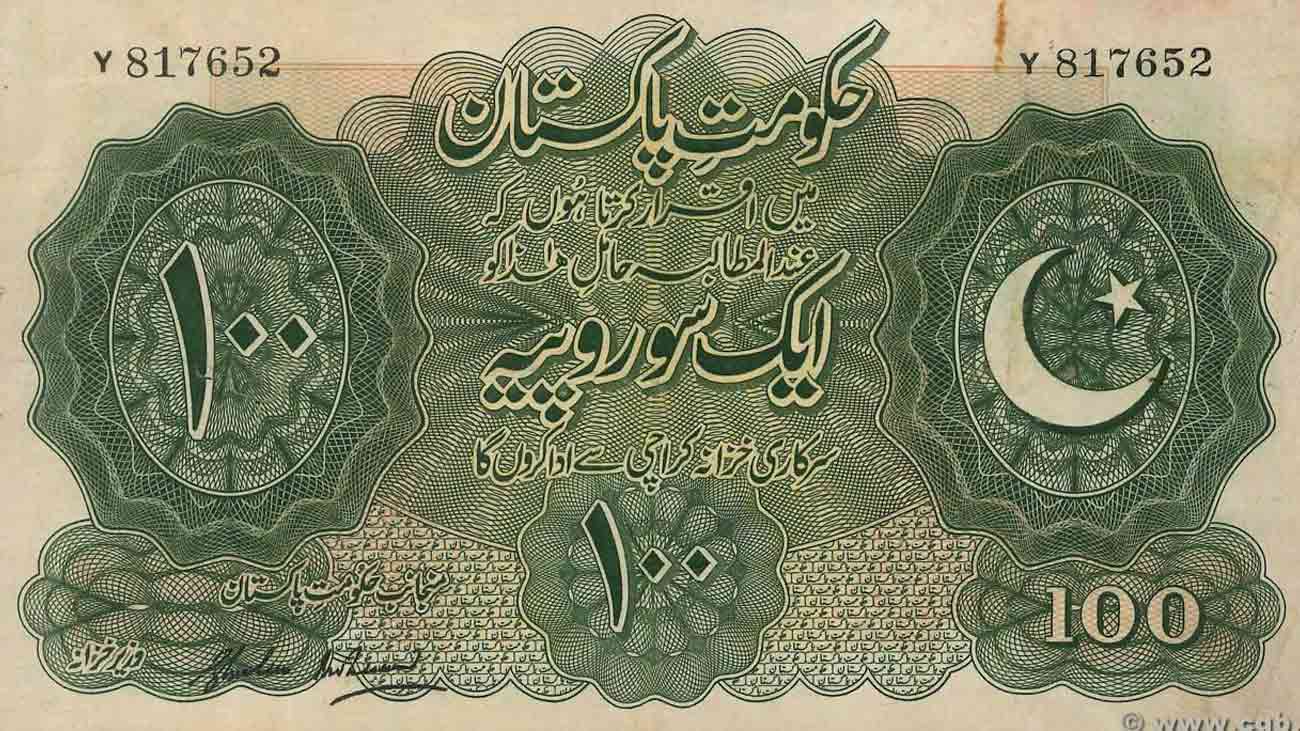 Y 817652
Y 817652
حکومتِ پاکستان
میں اقرار کرتا ہُوں کہ
عندالمطالبہ حاملِ ھٰذا کو
ایک سو روپیہ
سرکاری خزانہ کراچی سے ادا کروں گا
۱۰۰
۱۰۰
منجانب حکُومتِ پاکستان
وزیر خزانہ
100
© www.cgb.